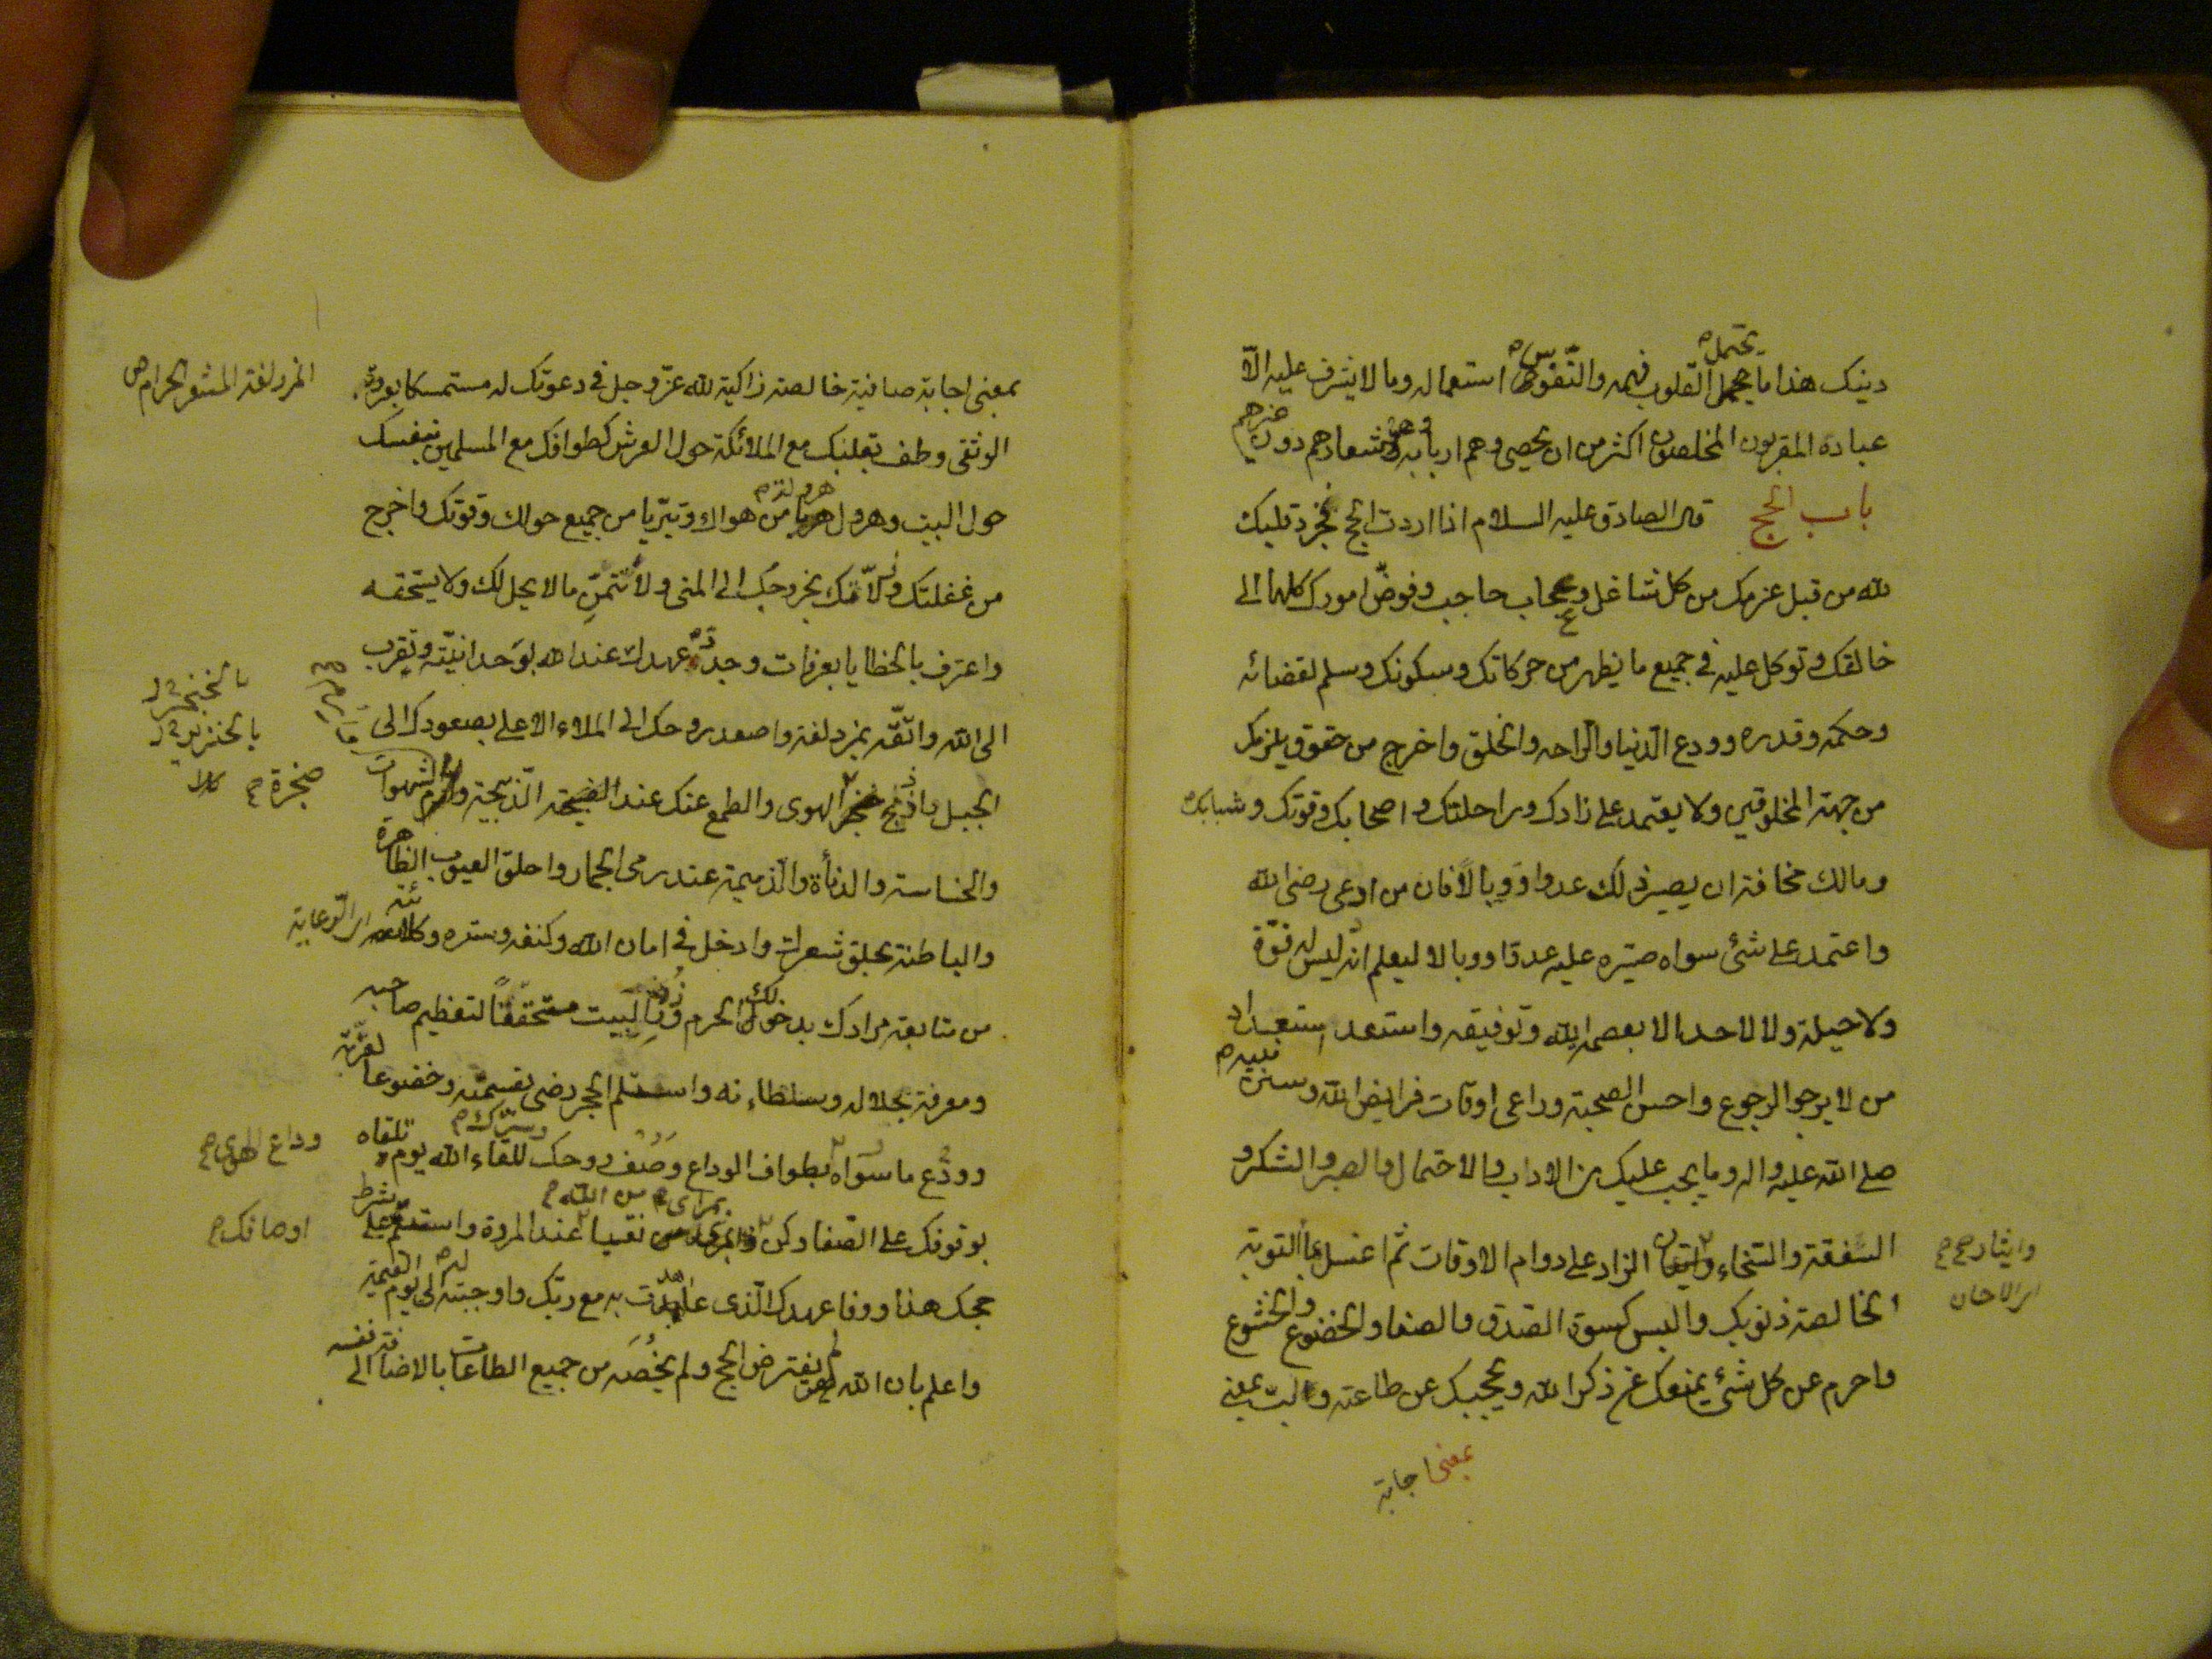 دينك هذا ما يحمل القلوب فهمه والنفوس استعماله وما لا يشرف عليه الا
يحتمل
عباده المقربون المخلصون اكثر من ان يحصى وهم اربابه وشعارهم دون غيرهم
باب الحج قال الصادق عليه السلام اذا اردت الحج فجرد قلبك
لله من قبل عزمك من كل شاغل وحجاب حاجب وفوض امورك كلها الى
خالقك وتوكل عليه في جميع ما يظهر من حركاتك وسكونك وسلم لقضائه
وحكمه وقدره وودع الدنيا والراحه والخلق واخرج من حقوق يلزمك
من جهة المخلوقين ولا يعتمد على زادك وراحلتك واصحابك وقوتك وشبابك
ومالك مخافة ان يصير ذلك عدوا ووبالا فان من ادعى رضى الله
واعتمد على شئ سواه صيره عليه عدوا ووبالا ليعلم انه ليس له قوة
ولا حيلة ولا لاحد الا بعصمة الله وتوفيقه واستعد استعداد
من لا يرجو الرجوع واحسن الصحبة وراعى اوقات فرايض الله وسنن نبيه
صلى الله عليه واله وما يجب عليك من الاداب والاحتمال والصبر والشكر و
الشفقة والسخاء وايثار الزاد على دوام الاوقات ثم اغسل بماء التوبة
وايثار
الخالصة ذنوبك والبس كسوة الصدق والصفا والخضوع والخشوع
واحرم عن كل شئ يمنعك عن ذكر الله ويحجبك عن طاعته ولب بمعنى
بمعنى اجابة
بمعنى اجابة صافية خالصة زاكية لله عز وجل في دعوتك له مستمسكا بعروة
المزدلفة المشعر الحرام ص
الوثقى وطف بقلبك مع الملائكة حول العرش كطوافك مع المسلمين بنفسك
حول البيت وهرول هربا من هواك وتبريا من جميع حولك وقوتك واخرج
هرولة
من غفلتك وزلاتك بخروجك الى المنى ولا تتمن ما لا يحل لك ولا يستحقه
واعترف بالخطايا بعرفات وجدد عهدك عند الله بوحدانيته وتقرب
الى الله واتقه بمزدلفة واصعد روحك الى الملاء الاعلى بصعودك الى
بالخنجر
الجبل واذبح حنجر الهوى والطمع عنك عند الذبيحة وارم الشهوات
حنجرة
والخساسة والدناة والذميمة عند رمى الجمار واحلق العيوب الظاهرة
والباطنة بحلق شعرك وادخل في امان الله وكنفه وستره وكلائته
اى الرعاية
من متابعة مرادك بدخولك الحرم وزر البيت متحققا لتعظيم صاحبه
ومعرفة بجلاله وسلطانه واستلم الحجر رضى بقسمته وخضوعا لعزته
وودع ما سواه بطواف الوداع وصف روحك وسرك للقاء الله يوم تلقاه
وداع الهوى
بوقوفك على الصفا وكن بمرأى من الله نقيا عند المروة واستقم على شرط
اوصافك
حجك هذا ووفا عهدك الذى عاهدت به مع ربك واوجبته له الى يوم القيمة
واعلم بان الله لم يفترض الحج ولم يخصه من جميع الطاعات بالاضافة الى نفسه